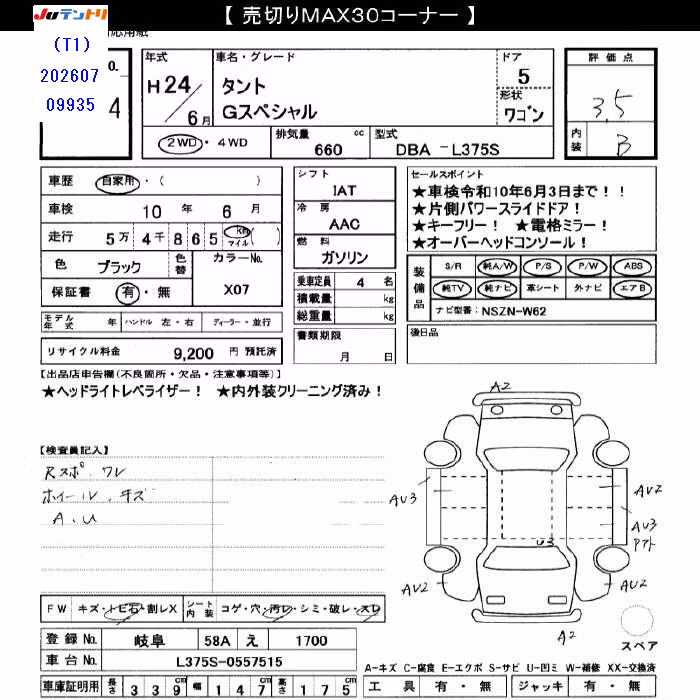 【 売切りMAX30コーナー 】
JUテントリ
(T1)
202607
09935
応用紙
o.
4
年式
H24/6月
車名・グレード
タント
Gスペシャル
ドア
5
形状
ワゴン
評価点
3.5
内装
B
2WD・4WD
排気量 660 cc
型式 DBA -L375S
車歴 自家用・( )
車検 10 年 6 月
走行 5万 4千 8 6 5 Km マイル ( )
色 ブラック 色替
カラーNo.
X07
保証書 有・無
モデル年式 年 ハンドル 左・右 ディーラー・並行
リサイクル料金 9,200 円 預託済
シフト
IAT
冷房
AAC
燃料
ガソリン
乗車定員 4 名
積載量 kg
総重量 kg
書類期限
月 日
セールスポイント
★車検令和10年6月3日まで!!
★片側パワースライドドア!
★キーフリー! ★電格ミラー!
★オーバーヘッドコンソール!
装備品
S/R 純A/W P/S P/W ABS
純TV 純ナビ 革シート 外ナビ エアB
ナビ型番: NSZN-W62
後日品
【出品店申告欄(不良箇所・欠品・注意事項等)】
★ヘッドライトレベライザー! ★内外装クリーニング済み!
【検査員記入】
Rスポ ワレ
ホイール、キズ
A、U
A2
AU3
AU2
AU3
アト
U3
AU2
AU2
A2
スペア
FW キズ・トビ石・割レX シート内装 コゲ・穴・汚レ・シミ・破レ・スレ
登録No. 岐阜 58A え 1700
車台No. L375S-0557515
車庫証明用 長さ 3 3 9 cm 幅 1 4 7 cm 高さ 1 7 5 cm
A-キズ C-腐食 E-エクボ S-サビ U-凹ミ W-補修 XX-交換済
工具 有・無 ジャッキ 有・無